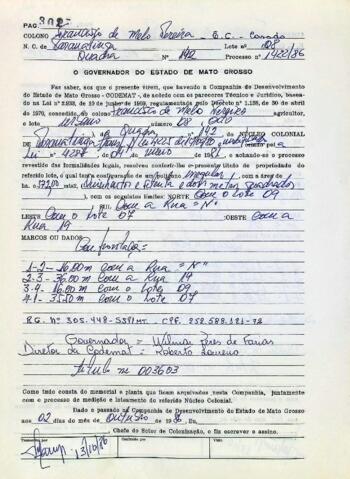 PAG. 302
COLONO Francisco de Melo Pereira - B.C. - Casado
N. C. de Paranatinga Lote nº 08
Quadra Nº 142 Processo nº 1422/86
O GOVERNADOR DO ESTADO DE MATO GROSSO
Faz saber, aos que a presente virem, que havendo a Companhia de Desenvolvimento
do Estado de Mato Grosso - CODEMAT -, de acordo com os pareceres Técnico e Jurídico, basea-
do na Lei nº 2.938, de 10 de junho de 1969, regulamentada pelo Decreto nº 1.138, de 30 de abril
de 1970, concedido ao colono Francisco de Melo Pereira agricultor,
o lote urbano número 08 (oito)
da Quadra 142 do NÚCLEO COLONIAL
de Paranatinga
Lei nº 4258 de maio de 1981, e achando-se o processo
revestido das formalidades legais, resolveu conferir-lhe o presente título de propriedade do
referido lote, o qual tem a configuração de um polígono irregular com a área de
ha. e 572,00 mts2. (quinhentos e setenta e dois metros quadrados)
), com os seguintes limites: NORTE Com o Lote 09
SUL Com a Rua "N"
LESTE Com o Lote 07 :OESTE Com a
Rua 19
MARCOS OU DADOS
Confrontações =
1-2 - 16,00 m Com a Rua "N"
2.3 - 36,00 m Com a Rua 19
3.4 - 16,00 m Com o Lote 09
4.1 - 35,50 m Com o Lote 07
RG. Nº 305.448-SSP/MT. CPF. 258.588.181-72
Governador = Wilmar Peres de Farias
Diretor da Codemat = Roberto Loureiro
Título nº 003603
Como tudo consta do memorial e planta que ficam arquivados nesta Companhia, juntamente
com o processo de medição e loteamento do referido Núcleo Colonial.
Dado e passado na Companhia de Desenvolvimento do Estado de Mato Grosso
aos 02 dias do mês de Outubro de 1986, Eu
Chefe do Setor de Colonização, o fiz escrever e assino.
Transcrito por Conferido por Visto
13/10/86